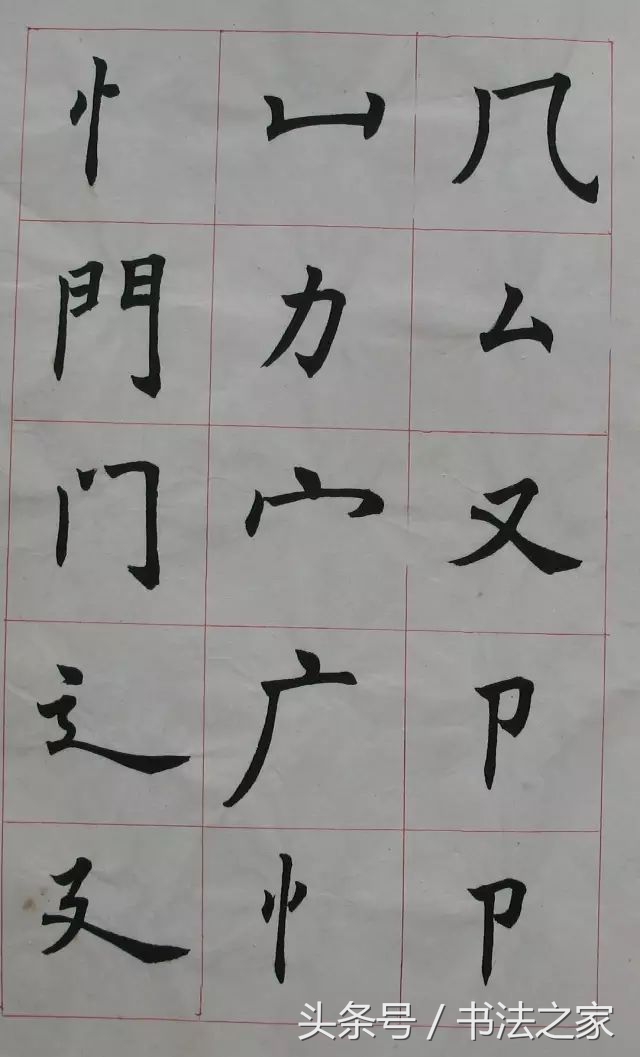 几厶又卩卩
凵力宀广忄
忄門门辶廴
头条号 / 书法之家